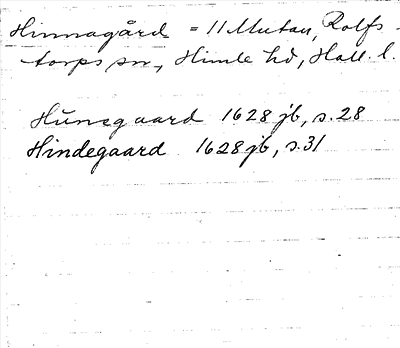 Hinnagård = 11 Mutan, Rolfs-
torps sn, Himle hd, Hall. l.
Hunegaard 1628 jb, s. 28
Hindegaard 1628 jb, s. 31